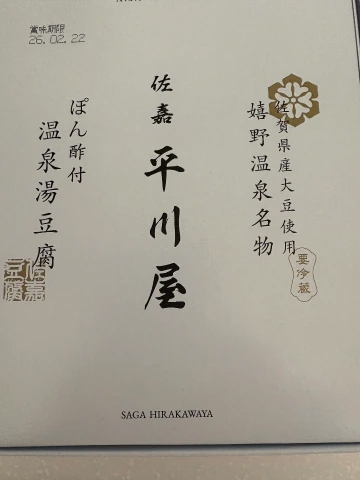 賞味期限
26.02.22
佐賀県産大豆使用
嬉野温泉名物
要冷蔵
佐嘉
平川屋
ぽん酢付
温泉湯豆腐
佐嘉
豆腐
SAGA HIRAKAWAYA